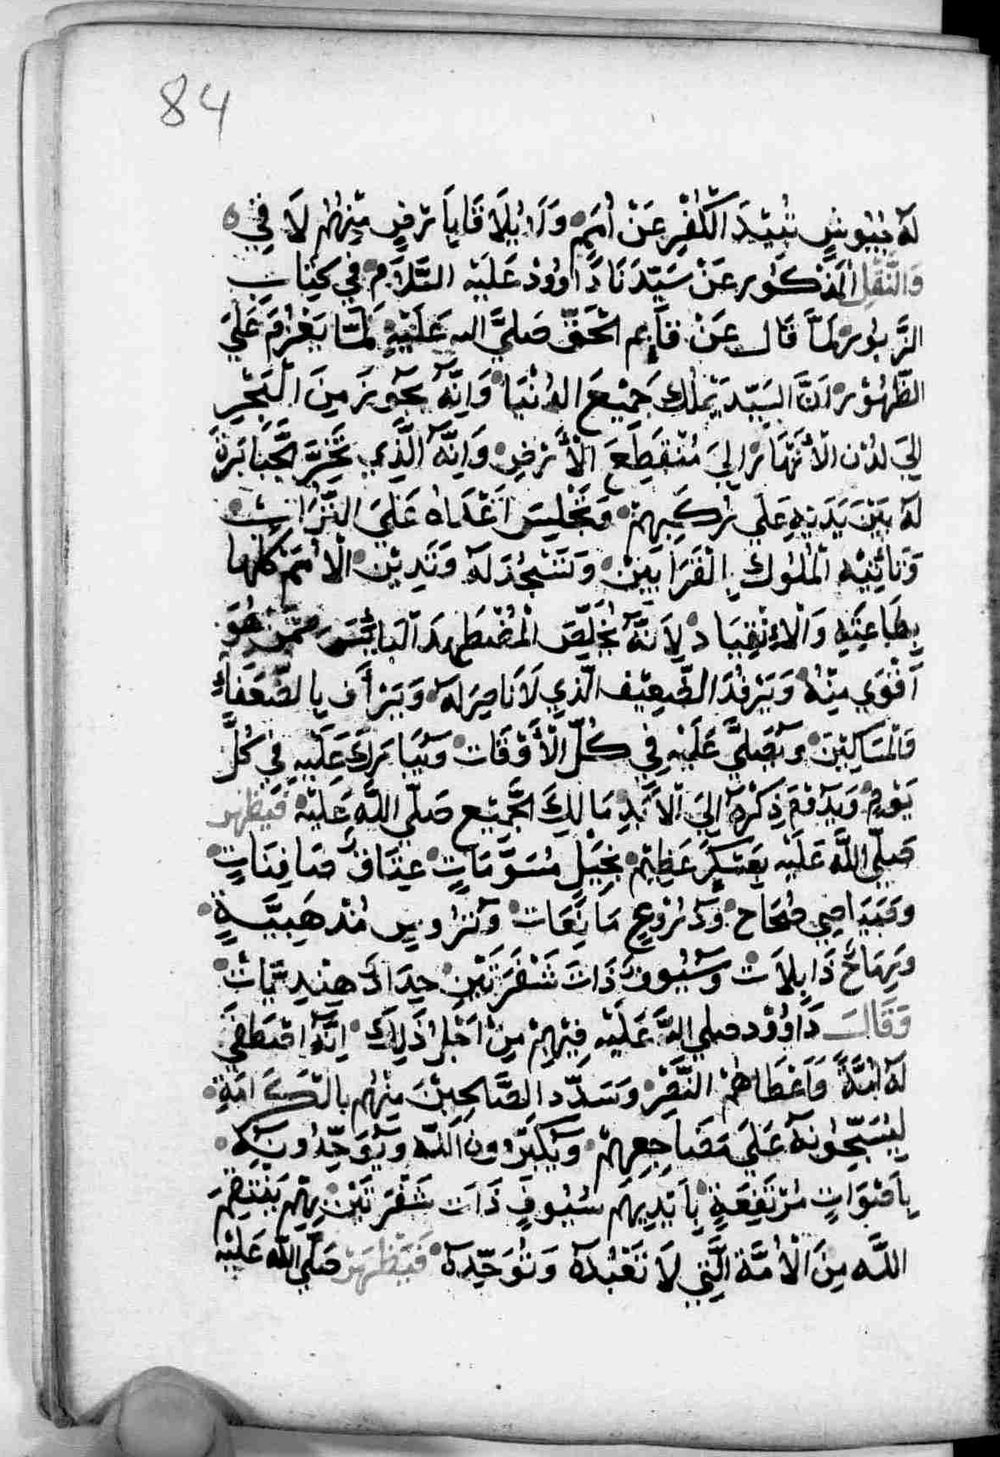 84
لَهُ بُيُوشٍ تُبِيْدَ الْكُفْرِ عَنْ أُمَمٍ وَرَايُلَا قَايَا بِرْفٍ مِنْهُمْ لَا فِي
وَالنَّقْلِ الْمَذْكُورِ عَنْ سَيِّدَنَا دَاوُوْدْ عَلَيْهِ السَّلَامْ فِي كِتَابِ
الزَّبُورْ لَمَّا قَالَ عَنْ قَايِمِ الْحَقّ صَلَّى الله عَلَيْهِ لَمَّا يَعْزُمْ عَلَى
الظُّهُوْرْ اَنَّ السَّيِّدْ يَمْلُكْ جَمِيْعَ الدُنْيَا وَاِنَّهُ يَجُوْزَ مِنَ الْبَحْرِ
اِلَى لَدُنِ الْاَنْهَارْ اِلَى مُنْقَطِعِ الْاَرْضِ وَاِنَّهُ الَّذِي تَخِرُّ الْجَبَابَرَةَ
لَهُ بَيْنَ يَدَيْهِ عَلَى رُكَبِهِمْ وَتَجْلِسَ اَعْدَاهُ عَلَى التُّرَابْ
وَتَاْتِيْهِ الْمُلُوكْ بِالْقَرَابِيْنْ وَتَسْجُدَ لَهُ وَتَدِيْنْ الْاُمَمْ كُلُّهَا
بِطَاعَتِهِ وَالْاِنْقِيَادْ لِاَنَّهُ يُخَلِّصَ الْمُضْطَهِدَ الْبَايِسَ مِمَّنْ هُوَ
اَقْوَى مِنْهُ وَيَرْفُدَ الضَّعِيْفْ الَّذِي لَا نَاصِرَ لَهُ وَيَرْأَفْ بِالضُعَفَاءْ
وَالْمَسَاكِيْنَ وَيُصَلَّى عَلَيْهِ فِي كُلِّ الْأَوْقَات وَيُبَارَكَ عَلَيْهِ فِي كُلِّ
يَوْمٍ وَيَدُوْمَ ذِكْرُهُ اِلَى الْاَبَدِ مَالِكَ الْجَمِيْع صَلَّى اللَّهَ عَلَيْهِ فَيَظْهَرْ
صَلَّى اللَّهَ عَلَيْهِ بِعَسْكَرٍ عَظِيْمْ بِخَيْلٍ مُسَوَّمَاتٍ عِتَاقْ صَافِنَاتٍ
وَبَيَارِقٍ صِحَاحْ وَدُرُوعٍ مَانِعَاتْ وَتُرُوسٍ مُذْهَبِيَّةٍ
وَرِمَاحٌ ذَابِلَاتْ وَسُيُوفْ ذَاتَ شَفْرَتَيْنِ حِدَادَ هِنْدِيَّاتْ
وَقَالَ دَاوُوْد صلى اللهَ عَلَيْهِ فِيْهِمْ مِنْ اَجْلِ ذَلِكَ اِنَّهُ اصْطَفَى
لَهُ اُمَّةً وَاَعْطَاهُمْ النَّصْرْ وَسَدَّدَ الصَّالِحِيْنَ مِنْهُمْ بِالْكَرَامَةِ
لِيُسَبِّحُونَهُ عَلَى مَضَاجِعِهِمْ وَيُكَبِّرُونَ اللَّهَ وَيُوَحِّدُونَهُ
بِاَصْوَاتٍ مُرْتَفِعَةٍ بِاَيْدِيهِمْ سُيُوفِ ذَاتَ شَفْرَتَيْنْ بِهِمْ يَنْتَقِمَ
اللَّهَ مِنَ الْاُمَّةِ الَّتِي لَا تَعْبُدُهُ وَتُوَحِّدُهُ فَيَظْهَرْ صَلَّى الله عَلَيْهِ